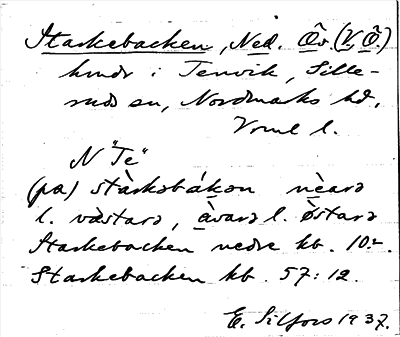 Starkebacken, Ned. Öv. (V. Ö.)
hmdr i Tenvik, Sille-
ruds sn, Nordmarks hd,
Vrml l.
N "Te"
(pa) stàrkəbákən nèarə
l. vàstarə, àvarə l. östarə
Starkebacken nedre kb. 10:2.
Starkebacken kb. 57:12.
E. Silfors 1937.